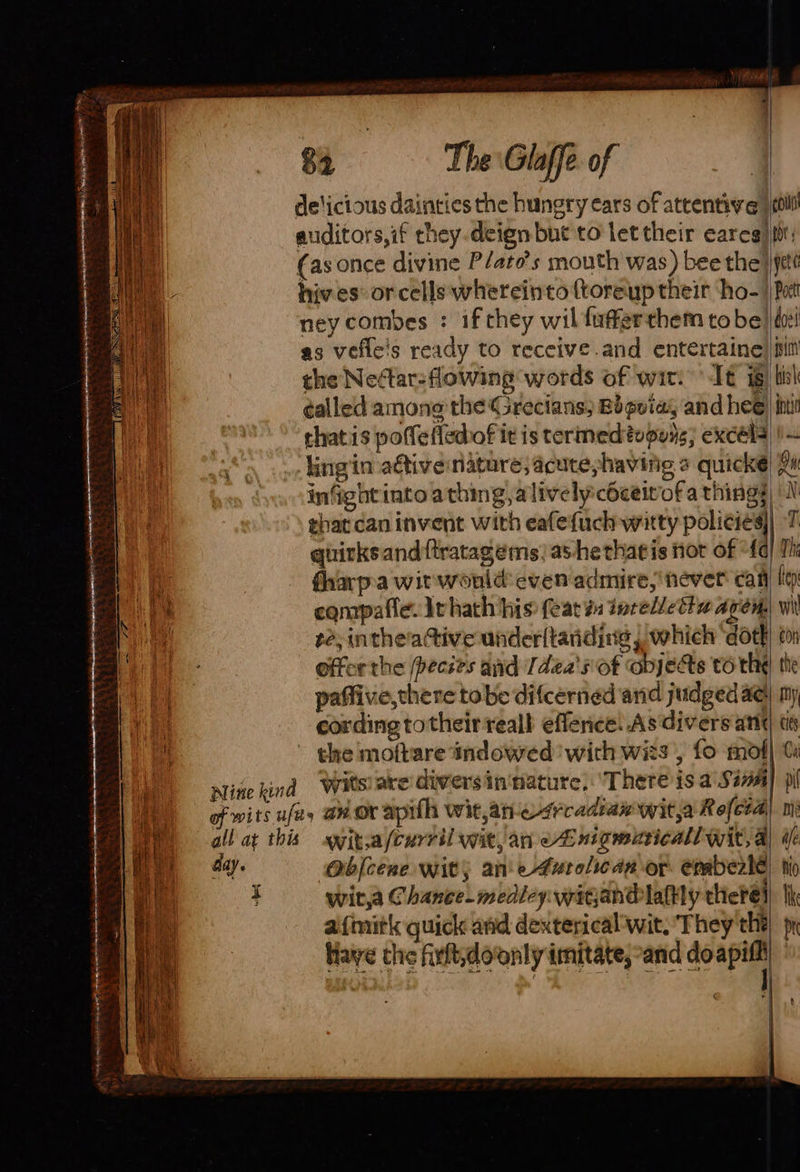 82 The Glaſſe of
delicious dainties the hungry ears of attentive
auditors, if they deign but to let their eares
(as once divine Plato's mouth was) bee the
hives or cells whereinto ſtore up their ho-
ney combes : if they wil ſuffer them to be
as veſſels ready to receive and entertaine
the Nectar-flowing words of wit. It is
called among the Grecians, and hee
that is poſſeſſed of it is termed excel-
ling in active nature, acute, having a quicke
inſight into a thing, a lively cōceit of a thing;
that can invent with eaſe ſuch witty policies,
quirks and ſtratagems, as he that is not of ſo
ſharp a wit would even admire, never can
compaſſe. It hath his ſeat in intellectu agen-
te, in the active underſtanding, which doth
offer the ſpecies and Idea's of objects to the
paſſive, there to be diſcerned and judged ac-
cording to their reall eſſence. As divers and
the moſt are indowed with wits, ſo moſt
wits are divers in nature. There is a Simi-
an or apiſh wit, an Arcadian wit, a Roſcian
wit, a ſcurril wit, an Ænigmaticall wit, a
Obſcene wit, an Autolican or embezled
wit, a Chance-medley wit, and laſtly there is
a ſmirk quick and dexterical wit. They that
have the firſt, do only imitate, and do apiſh
Nine kind
of wits uſu-
all at this
day.
1